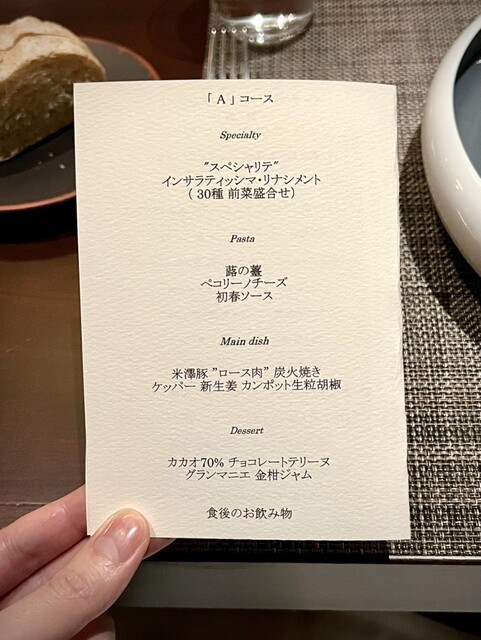 「 A 」 コース
Specialty
"スペシャリテ"
インサラティッシマ・リナシメント
( 30種 前菜盛合せ)
Pasta
蕗の薹
ペコリーノチーズ
初春ソース
Main dish
米澤豚 ”ロース肉” 炭火焼き
ケッパー 新生姜 カンポット生粒胡椒
Dessert
カカオ70% チョコレートテリーヌ
グランマニエ 金柑ジャム
食後のお飲み物